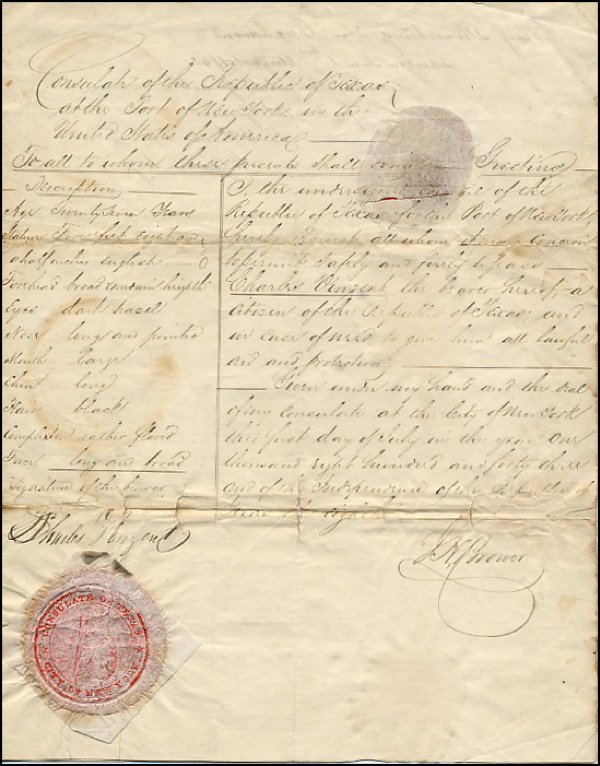 Consulate of the Republic of Texas
at the Port of New York in the
United States of America
To all to whom these presents shall come Greeting
Description
Age Twenty seven Years
Stature Five feet eight and
a half inches english
Forehead broad common height
Eyes dark hazel
Nose long and pointed
Mouth large
Chin long
Hair black
Complexion rather florid
Face long and broad
Signature of the bearer
Charles Vinzent
I, the undersigned Consul of the
Republic of Texas for the Port of New York
hereby Request all whom it may concern
to permit Safely and freely to pass
Charles Vinzent the bearer hereof, a
Citizen of the Republic of Texas; and
in case of need to give him all lawful
aid and protection.
Given under my hand and the Seal
of my Consulate at the City of New York
this first day of July in the year One
thousand eight hundred and forty three
and of the Independence of the Republic of
Texas the eighth
J H Brower
CONSULATE OF TEXAS
NEW YORK